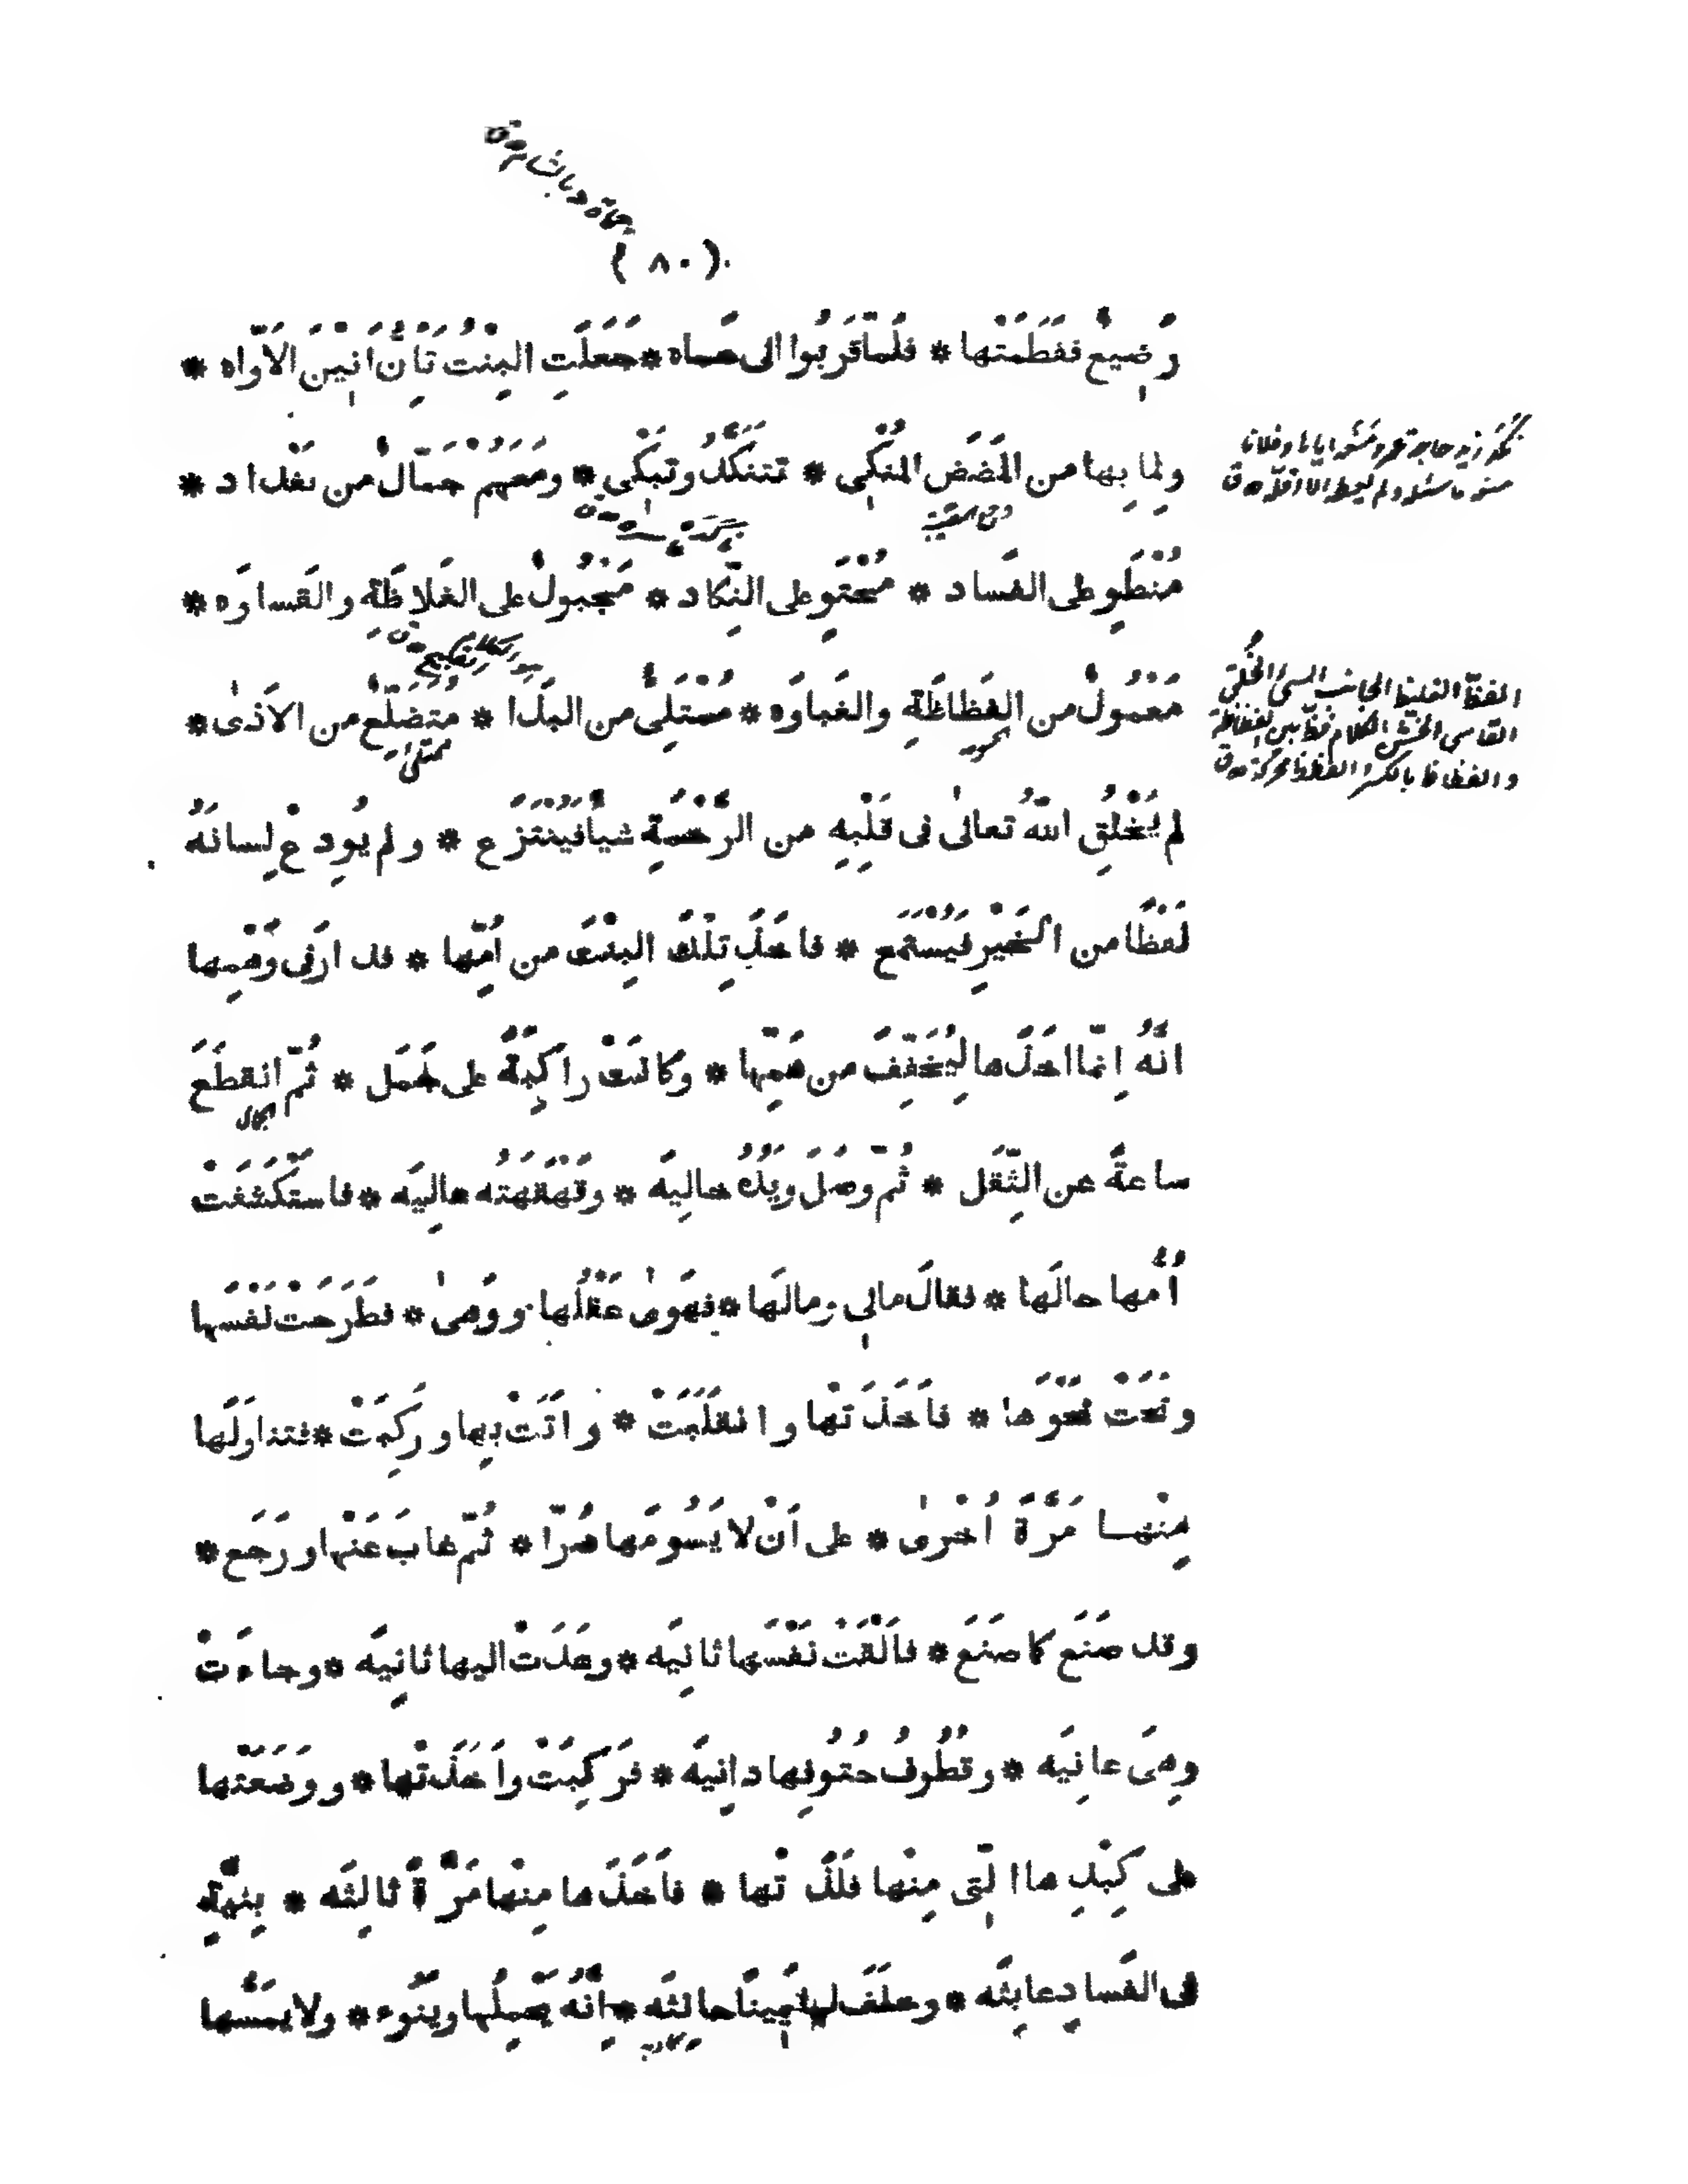 (٨٠)
رَضِيعٌ فَفَطَمَتْها * فلَمّا قَرُبُوا الى حَماه * جَعَلَتِ البِنْتُ تَاِنُّ اَنِيْنَ الاَوّاه *
ولِما بِها من المَضَضِ المُنْكِى * تتنكَّدُ وتَبْكِى * ومَعَهُمْ جَمّالٌ من بَغْداد *
مُنْطَوٍ على الفَساد * مُحْتَوٍ على النَّكاد * مَجْبُولٌ على الغَلاظَةِ والقَساوَه *
مَعْمُولٌ من الفَظاظَةِ والغَباوَه * مُمْتَلِئٌ من البَذا * مُتَضَلِّعٌ من الاَذىٰ *
لم يَخْلُقِ اللهُ تعالىٰ فى قَلْبِهِ من الرَّحْمَةِ شيأً فَيُنْتَزَع * ولم يُودِعْ لِسانَهُ
لَفْظًا من الخَيْرِ فَيُسْتَمَع * فاخَذَ تِلْكَ البِنْتَ من اُمِّها * فدارَ فى وَهْمِها
انّهُ اِنّما اخَذَها لِيُخَفِّفَ من هَمِّها * وكانَتْ راكِبَةً على جَمَل * ثُمّ انقطَعَ
الجمال
ساعةً عن الثَّقَل * ثُمّ وصَلَ ويَدُهُ خالِيَه * وقَهْقَهَتُه عالِيَه * فاستَكْشَفَتْ
اُمُّها حالَها * فقالَ مالِى ومالَها * فهَوىٰ عَقْلُها ووَهىٰ * فطَرَحَتْ نَفْسَها
ونَحَتْ نَحْوَها * فاَخَذَتْها وانقَلَبَتْ * واَتَتْ بِها ورَكِبَتْ * فتناوَلَها
مِنْها مَرَّةً اُخْرىٰ * على اَنْ لا يَسُومَها ضُرّا * ثُمّ غابَ عَنْها ورَجَع *
وقد صَنَع كما صَنَع * فاَلْقَتْ نَفْسَها ثانِيَه * وعَدَتْ اليها ثانِيَه * وجاءَتْ
وهِىَ عانِيَه * وقُطُوفُ حُتُوفِها دانِيَه * فرَكِبَتْ واَخَذَتْها * ووَضَعَتْها
على كَبِدِها الّتِى مِنْها فلَذَتْها * فاَخَذَها مِنْها مَرَّةً ثالِثَه * بِنِيَّةٍ
فى الفَسادِ عابِثَه * وحلَفَ لها يَمِيناً حانِثَه * اِنّهُ يَحْمِلُها ويَنُوء * ولا يمَسُّها
الفظّ الغليظ الجانب السيئ الخُلُق
القاسى الخشن الكلام فظّ بيّن الفظاظة
والفظاظ بالكسر والفظظ محركة ق
ممتلئ